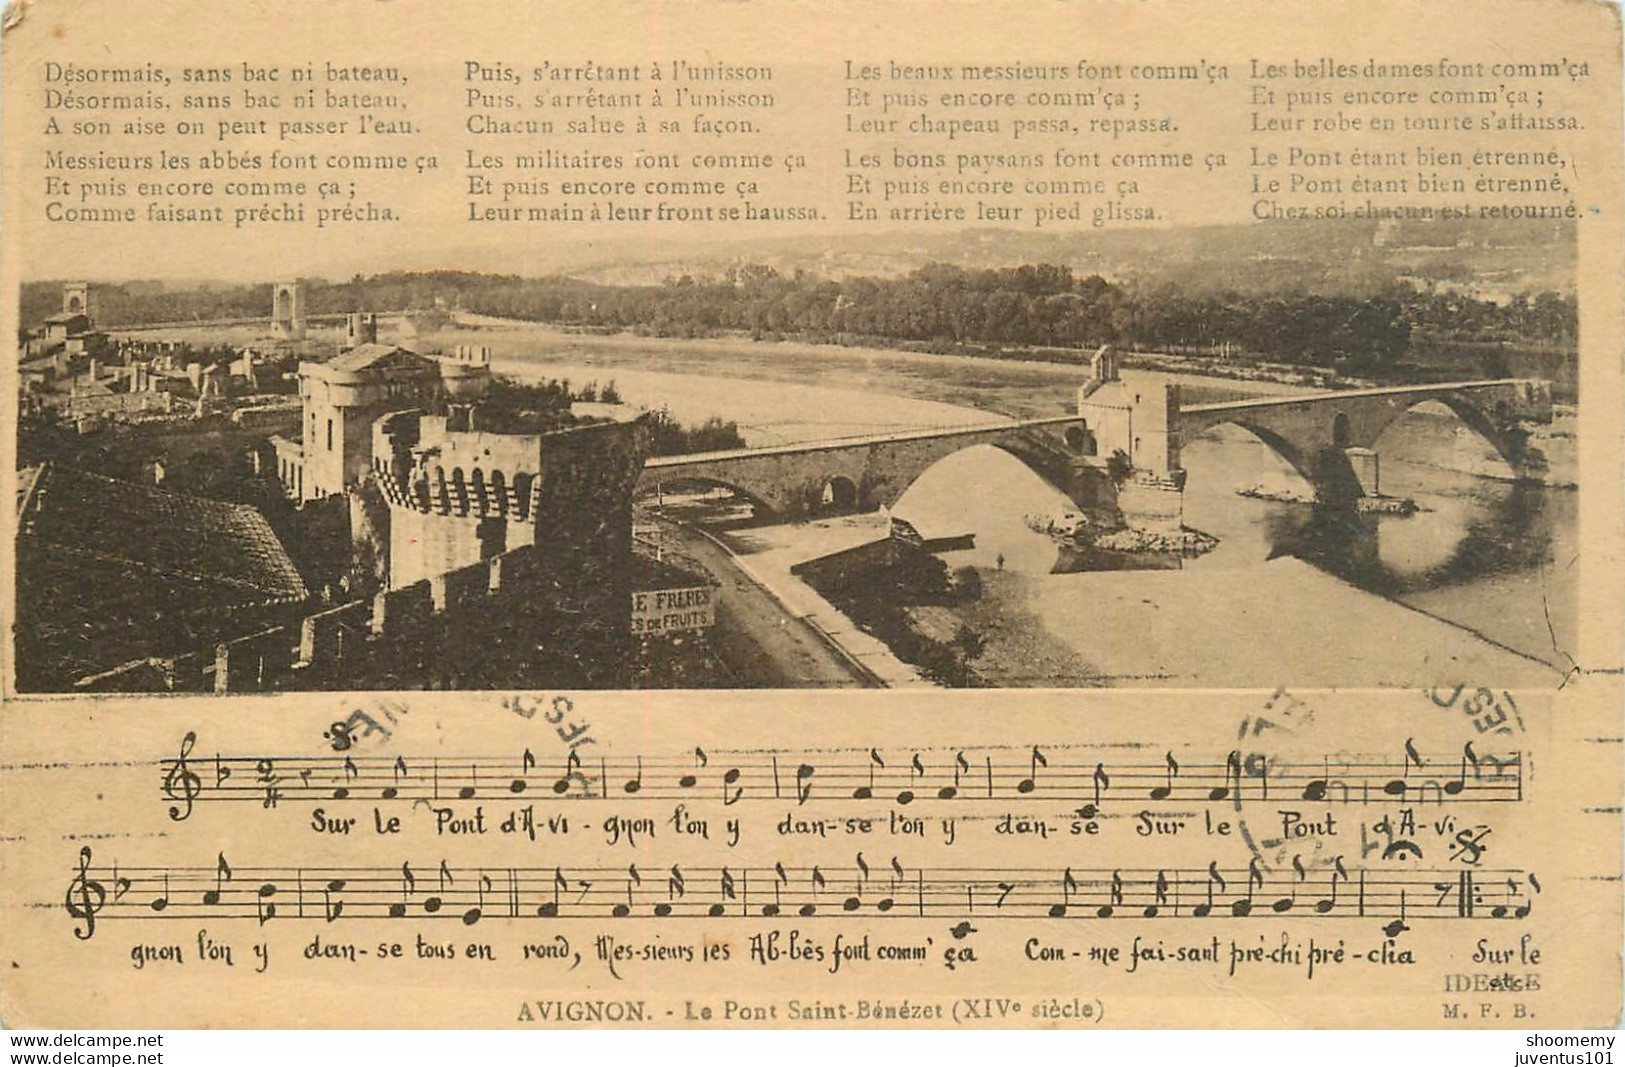 Désormais, sans bac ni bateau,
Désormais, sans bac ni bateau,
A son aise on peut passer l'eau.
Messieurs les abbés font comme ça
Et puis encore comme ça ;
Comme faisant préchi précha.
Puis, s'arrêtant à l'unisson
Puis, s'arrêtant à l'unisson
Chacun salue à sa façon.
Les militaires font comme ça
Et puis encore comme ça
Leur main à leur front se haussa.
Les beaux messieurs font comm'ça
Et puis encore comm'ça ;
Leur chapeau passa, repassa.
Les bons paysans font comme ça
Et puis encore comme ça
En arrière leur pied glissa.
Les belles dames font comm'ça
Et puis encore comm'ça ;
Leur robe en tourte s'affaissa.
Le Pont étant bien étrenné,
Le Pont étant bien étrenné,
Chez soi chacun est retourné.
E FRERES
ES DE FRUITS
Sur le Pont d'A-vi - gnon l'on y dan-se l'on y dan-se Sur le Pont d'A-vi -
gnon l'on y dan-se tous en rond, Mes-sieurs les Ab-bès font comm' ça Com-me fai-sant pré-chi pré-cha Sur le
etc.
IDEALE
AVIGNON. - Le Pont Saint-Bénézet (XIVe siècle)
M. F. B.
Myonline.store
Myonline.store
shoomemy
juventus101